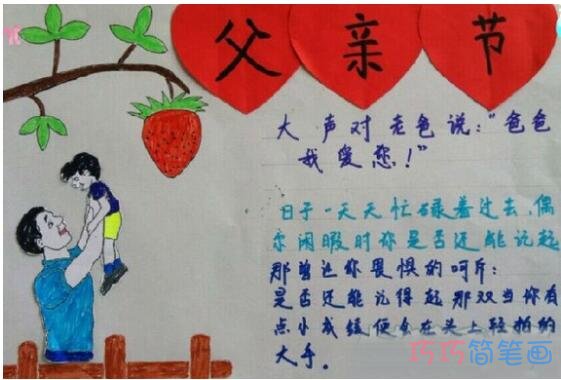 父亲节
大声对老爸说:“爸爸
我爱您!”
日子一天天忙碌着过去,偶
尔闲暇时你是否还能记起
那曾让你畏惧的呵斥;
是否还能记得起那双当你有
点小成绩便会在头上轻拍的
大手。
巧巧简笔画